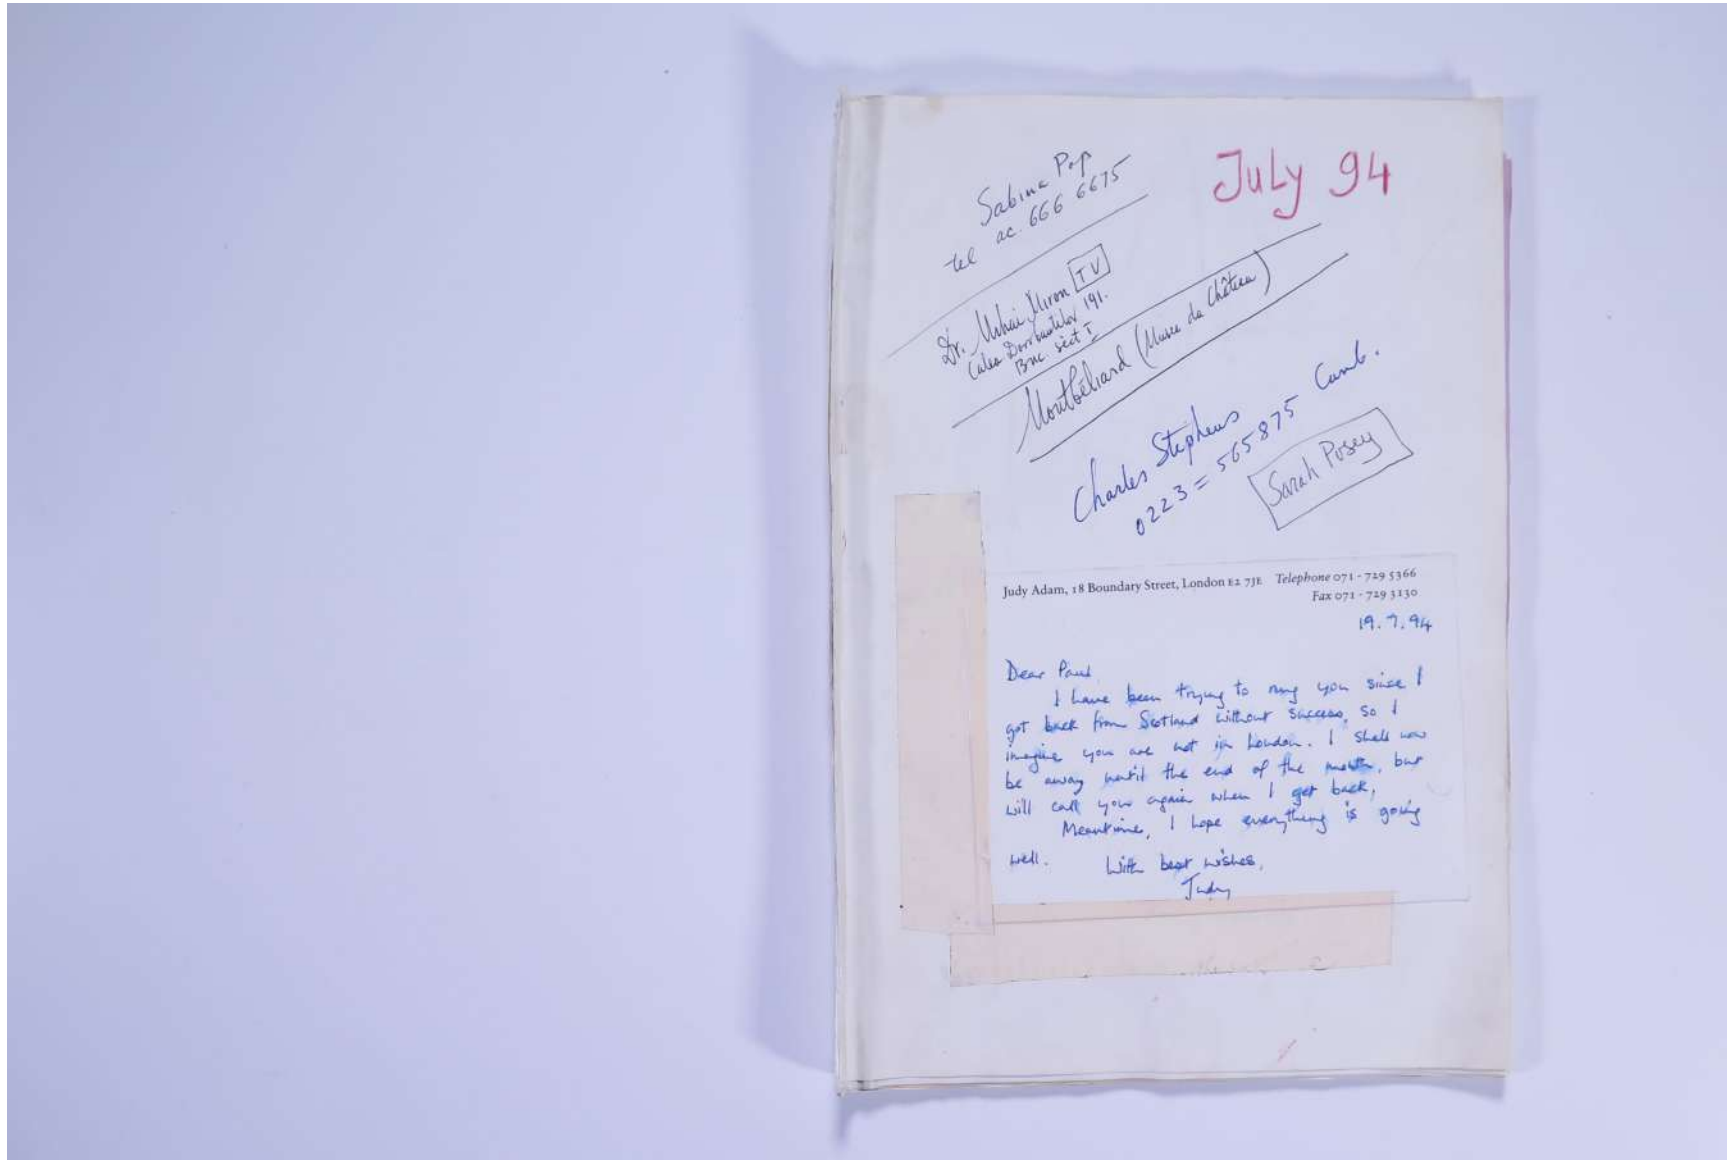 July 94
Sabina Pop
tel ac. 666 6675
Dr. Mihai Miron TV
Calea Dorobantilor 191.
Buc. sect I
Montbéliard (Musée du Château)
Charles Stephens
0223 = 565875 Camb.
Sarah Posey
Judy Adam, 18 Boundary Street, London E2 7JE Telephone 071 - 729 5366
Fax 071 - 729 3130
19.7.94
Dear Paul
I have been trying to ring you since I
got back from Scotland without success, so I
imagine you are not in London. I shall now
be away until the end of the month, but
will call you again when I get back,
Meantime, I hope everything is going
well. With best wishes,
Judy